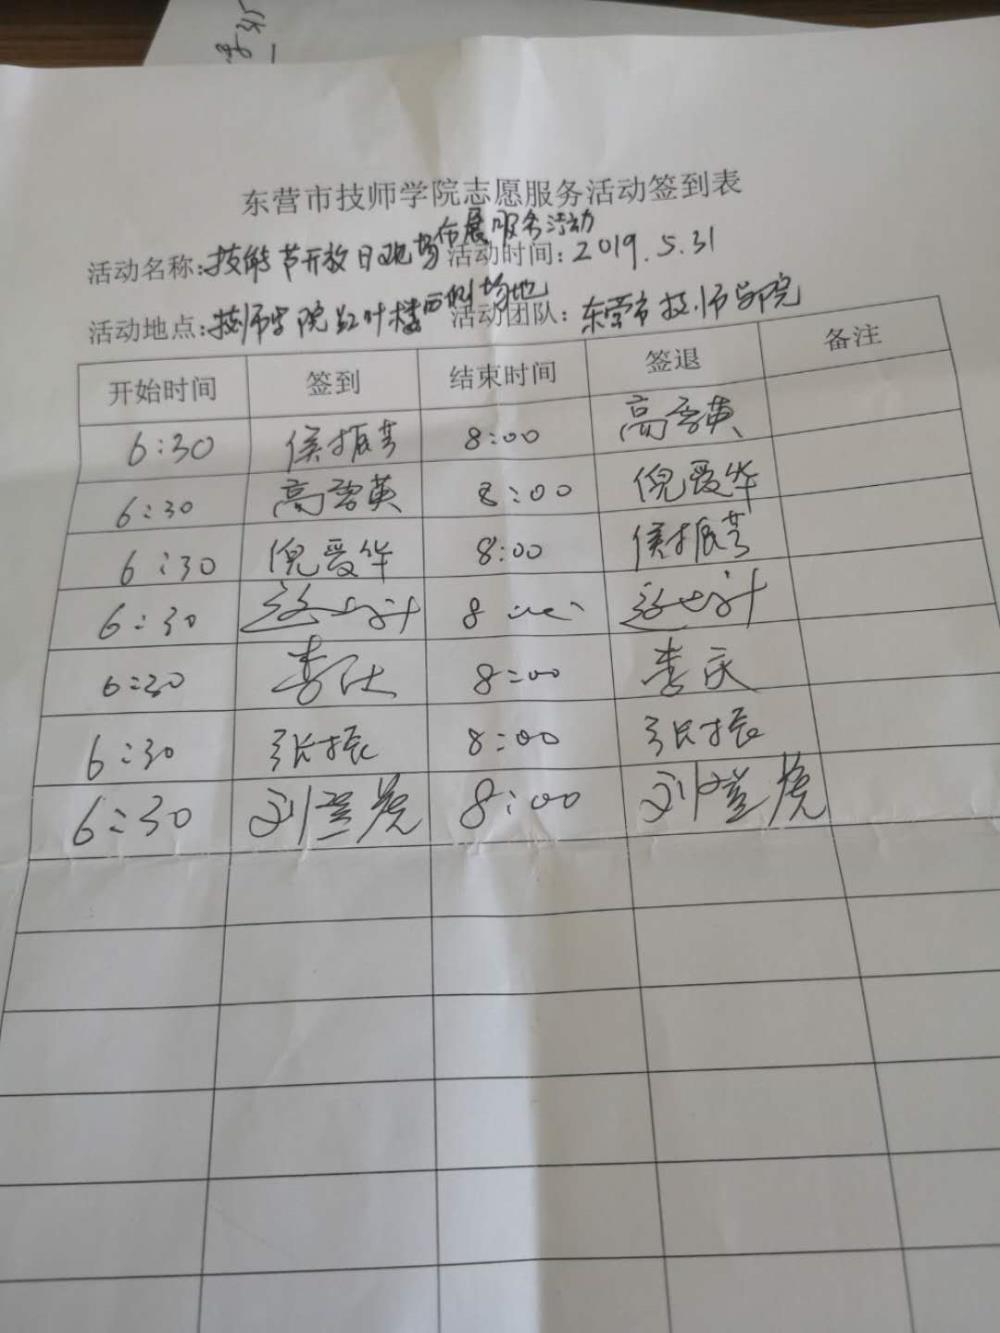 东营市技师学院志愿服务活动签到表
活动名称:技能节开放日现场布展服务活动 活动时间:2019.5.31
活动地点:技师学院红叶楼西侧场地 活动团队:东营市技师学院
开始时间 签到 结束时间 签退 备注
6:30 侯振芳 8:00 高秀英
6:30 高秀英 8:00 倪爱华
6:30 倪爱华 8:00 侯振芳
6:30 8:00
6:30 李庆 8:00 李庆
6:30 张振 8:00 张振
6:30 刘 8:00 刘